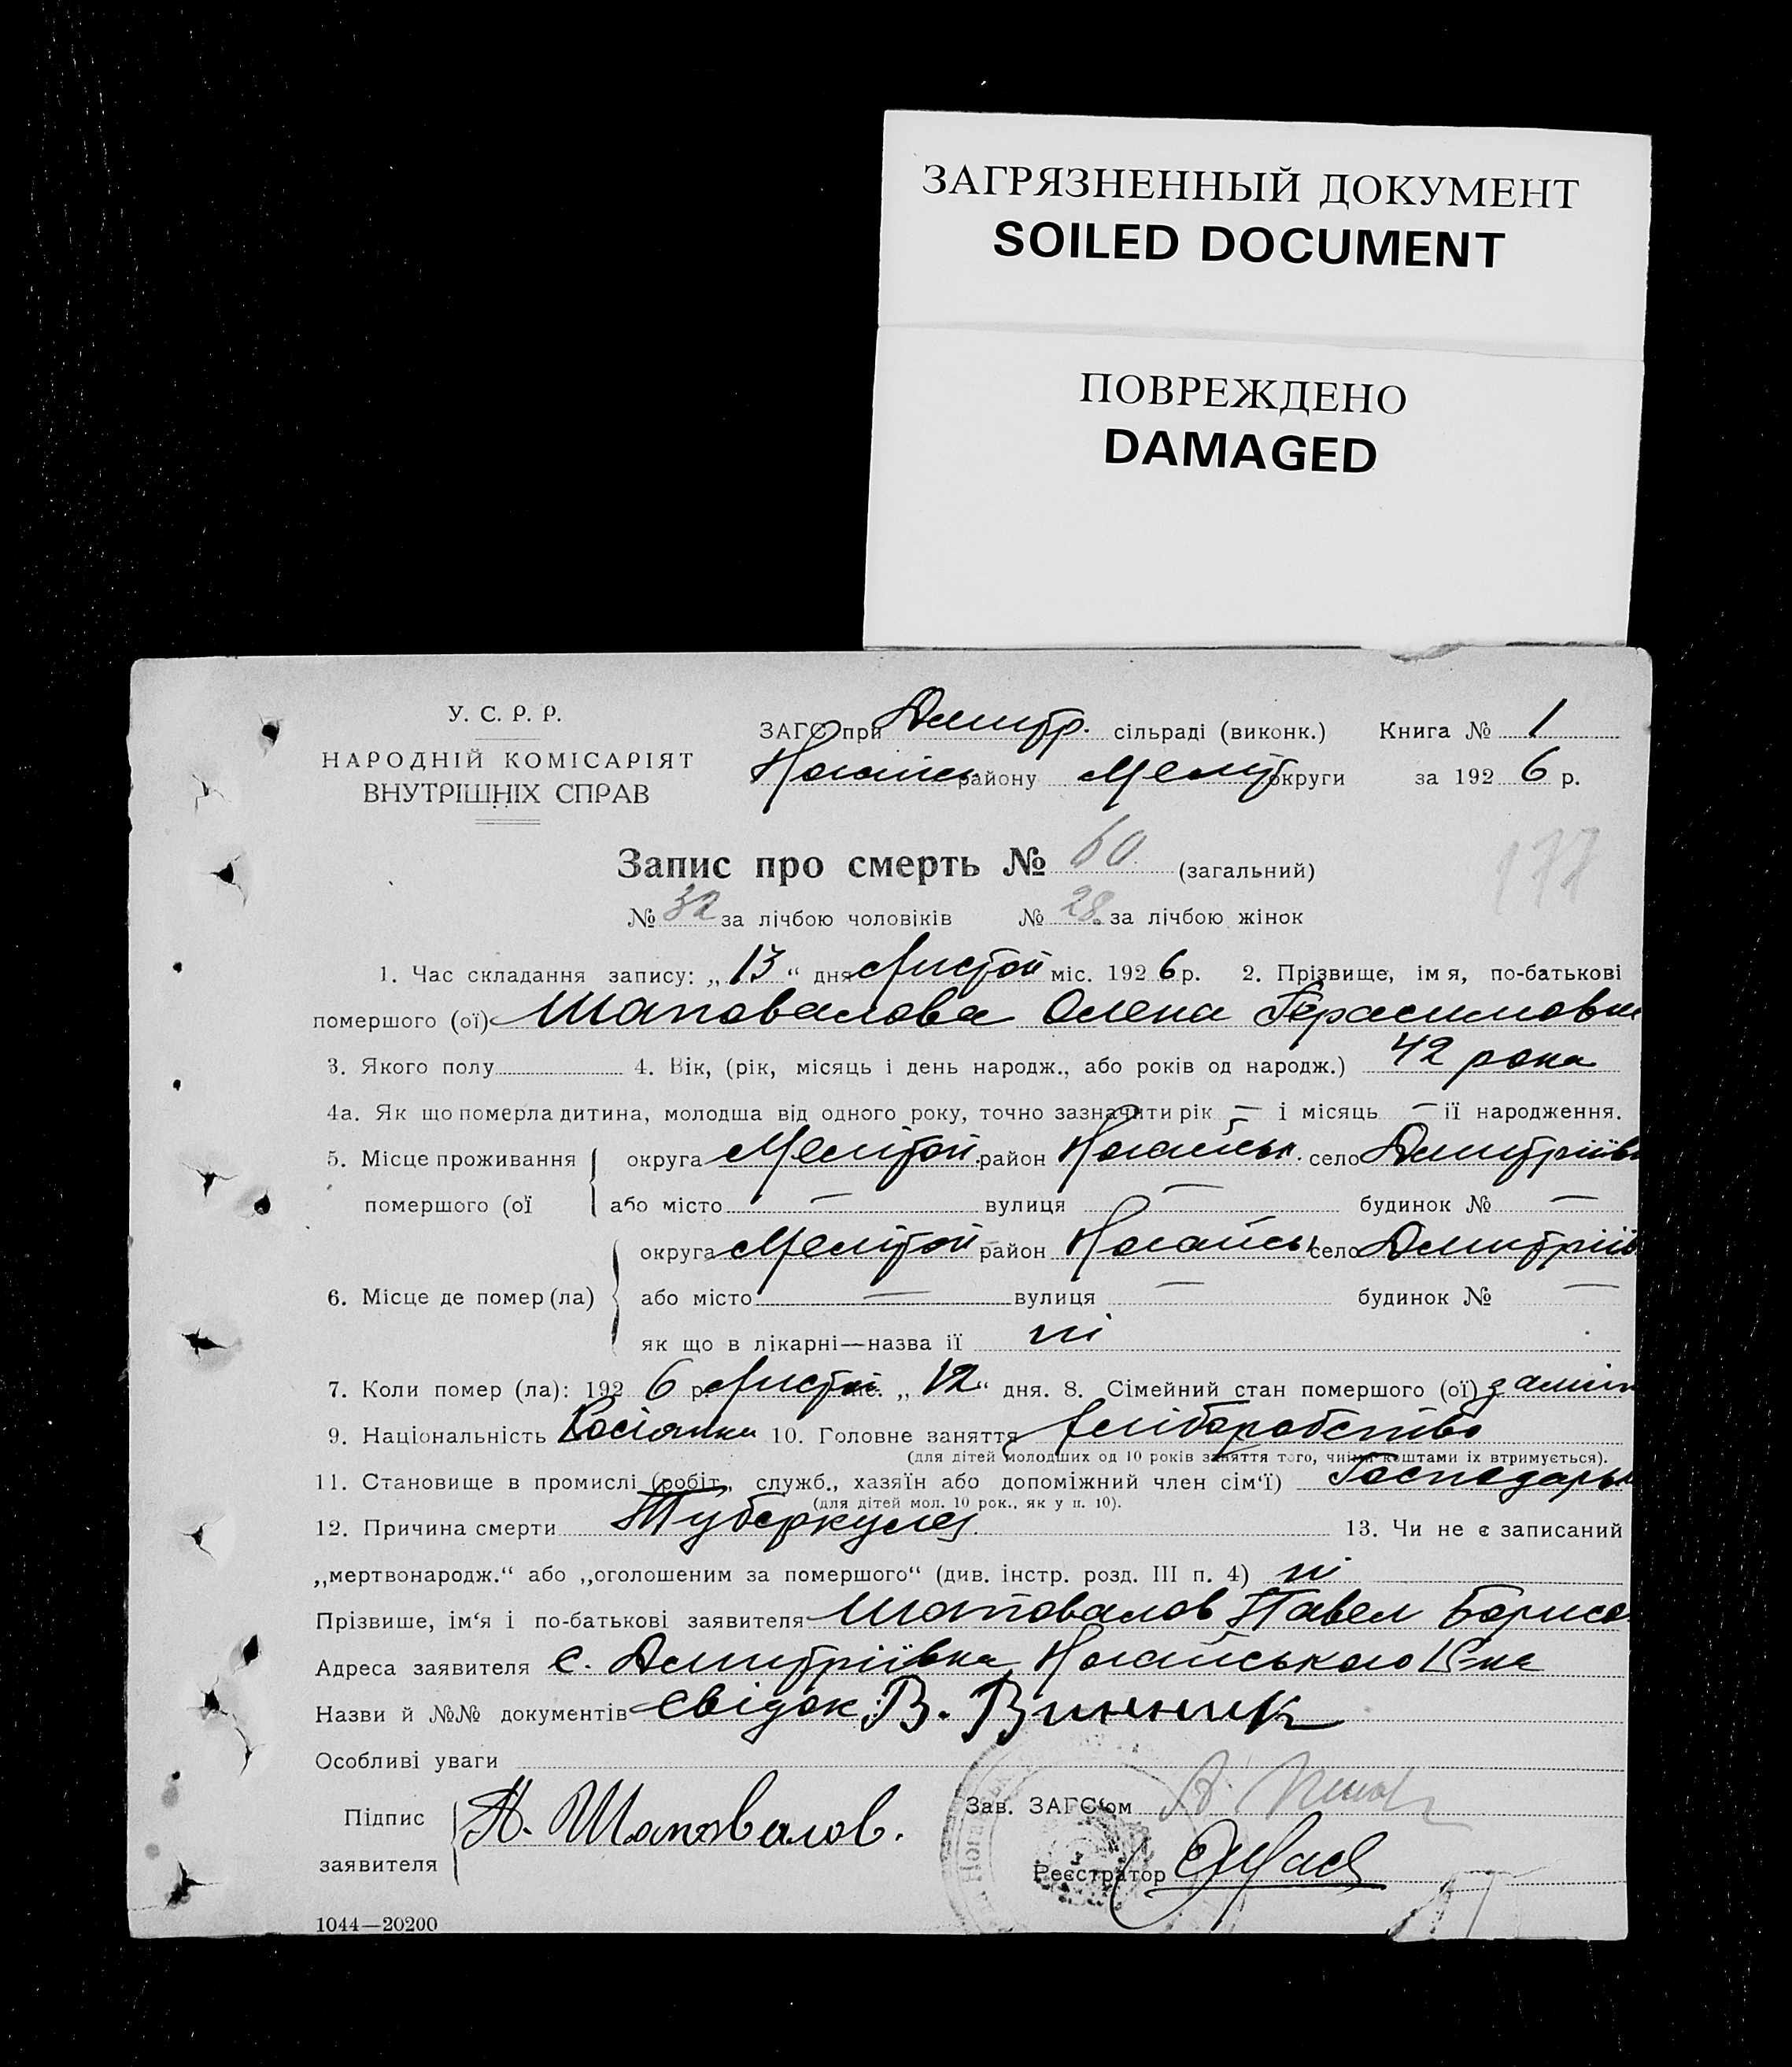 ЗАГРЯЗНЕННЫЙ ДОКУМЕНТ
SOILED DOCUMENT
ПОВРЕЖДЕНО
DAMAGED
У. С. Р. Р.
НАРОДНІЙ КОМІСАРІЯТ
ВНУТРІШНІХ СПРАВ
ЗАГС при Дмитр. сільраді (виконк.) Книга № 1
Ногайськ району Меліт округи за 1926 р.
Запис про смерть № 60 (загальний)
177
№ 32 за лічбою чоловіків № 28 за лічбою жінок
1. Час складання запису: „13“ дня Листоп міс. 1926 р. 2. Прізвище, імя, по-батькові
помершого (ої) Шаповалова Олена Герасимовна
3. Якого полу 4. Вік, (рік, місяць і день народж., або років од народж.) 42 рока
4а. Як що померла дитина, молодша від одного року, точно зазначити рік — і місяць — її народження.
5. Місце проживання округа Мелітоп. район Ногайськ. село Дмитріївк
помершого (ої або місто — вулиця — будинок № —
округа Мелітоп район Ногайськ село Дмитрiїв
6. Місце де помер (ла) або місто — вулиця — будинок № —
як що в лікарні—назва її ні
7. Коли помер (ла): 1926 р. Листоп міс. „12“ дня. 8. Сімейний стан помершого (ої) заміж
9. Національність Росіянка 10. Головне заняття Хліборобство
(для дітей молодших од 10 років заняття того, чиїми коштами їх втримується).
11. Становище в промислі (робіт., служб., хазяїн або допоміжний член сім‘ї) Господарь
(для дітей мол. 10 рок., як у п. 10).
12. Причина смерти Туберкулез 13. Чи не є записаний
„мертвонародж.“ або „оголошеним за помершого“ (див. інстр. розд. III п. 4) ні
Прізвише, ім‘я і по-батькові заявителя Шаповалов Павел Борисо
Адреса заявителя с. Дмитріївка Ногайського Р-на
Назви й №№ документів Свідок: В. Винник
Особливі уваги
Підпис
заявителя П. Шаповалов.
Зав. ЗАГС‘ом
Реєстратор
1044—20200